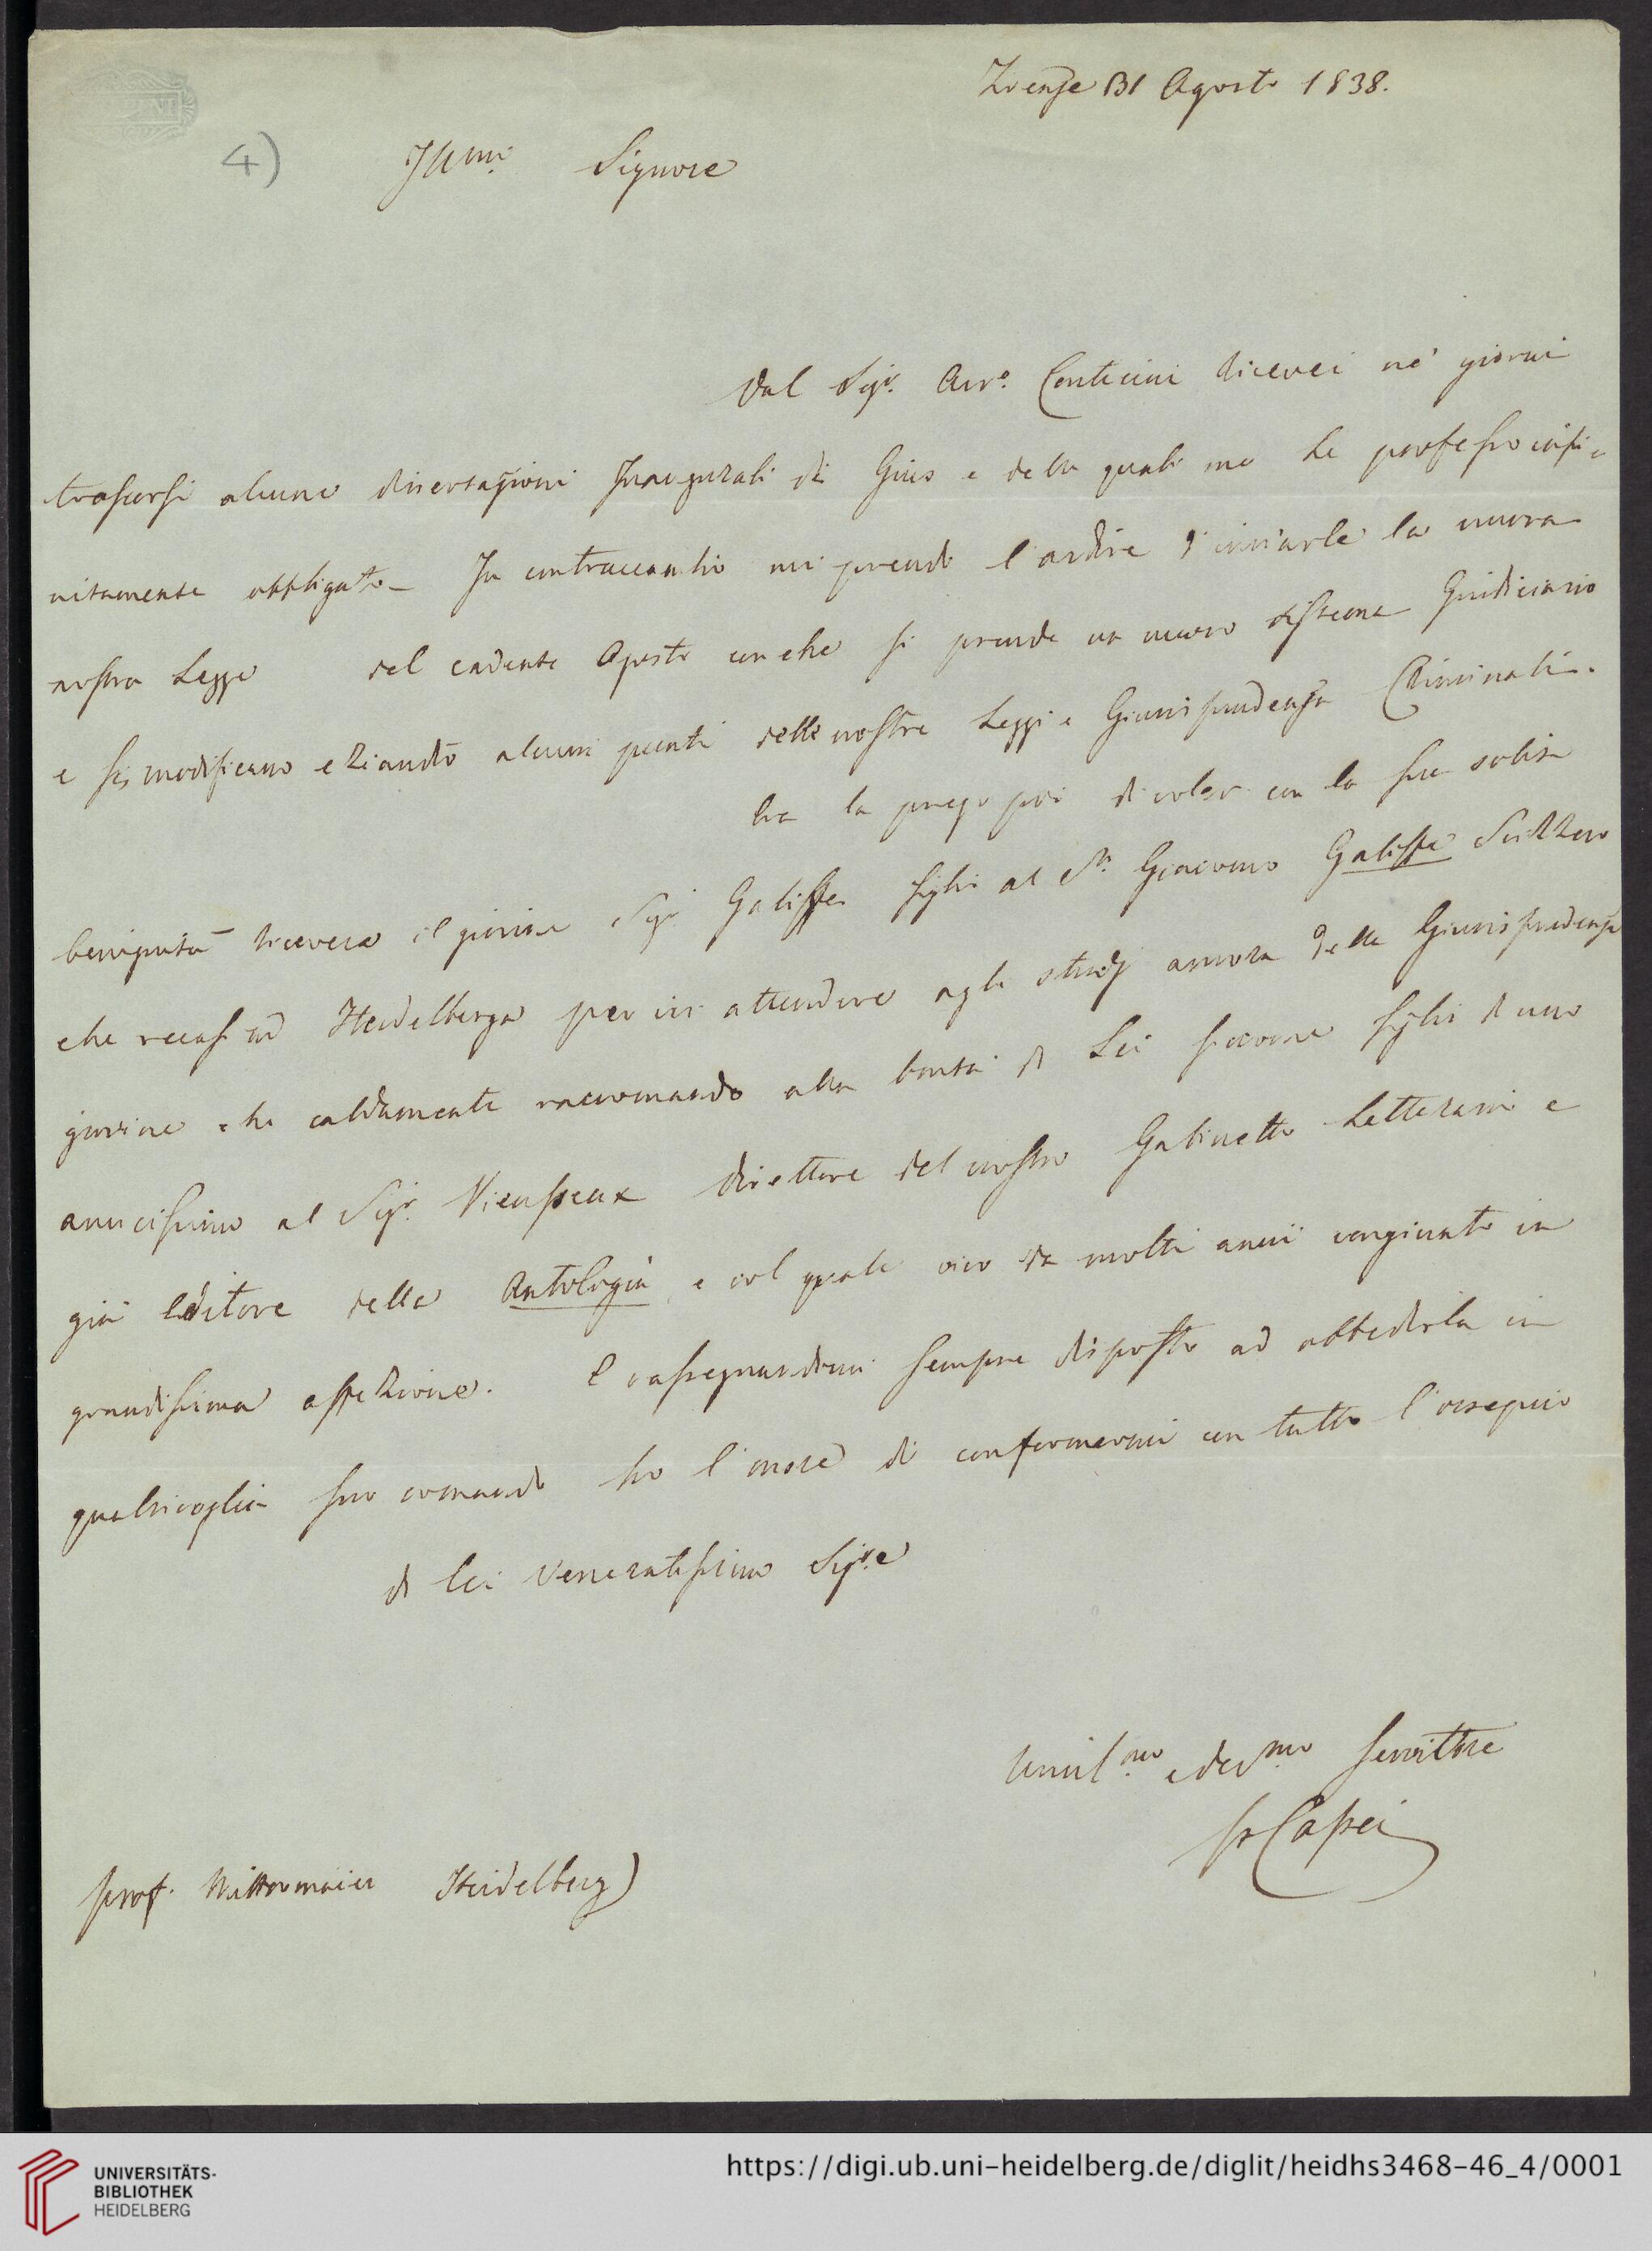 Firenze 31 Agosto 1838.
4)
Illmo. Signore
Dal Sigr. Avvo. Conticini ricevei ne' giorni
trascorsi alcune dissertazioni Inaugurali di Gius e delle quali me Le professo infi-
nitamente obbligato – In contraccambio mi prendo l'ardire d'inviarle la nuova
nostra Legge del cadente Agosto con che si prende un nuovo sistema Giudiciario
e si modificano eziandio alcuni punti delle nostre Leggi e Giurisprudenza Criminali.
la prego poi di voler con la sua solita
benignità ricevere il giovine Sigr. Galiffe figlio al Sr. Giacomo Galiffe Svizzero
che recasi ad Heidelberga per ivi attendere agli studj ancora della Giurisprudenza
giovine che caldamente raccomando alla bontà di Lei siccome figlio d'uno
amicissimo al Sigr. Vieusseux direttore del nostro Gabinetto Letterario e
già Editore della Antologia, e col quale vivo da molti anni congiunto in
grandissima affezione. E rassegnandomi sempre disposto ad obbedirla in
qualsivoglia suo comando ho l'onore di confermarmi con tutto l'ossequio
di Lei Veneratissimo Sigre
Umilmo e devmo servitore
P Capei
prof. Mittermaier Heidelberg)
UNIVERSITÄTS-
BIBLIOTHEK
HEIDELBERG
https://digi.ub.uni-heidelberg.de/diglit/heidhs3468-46_4/0001